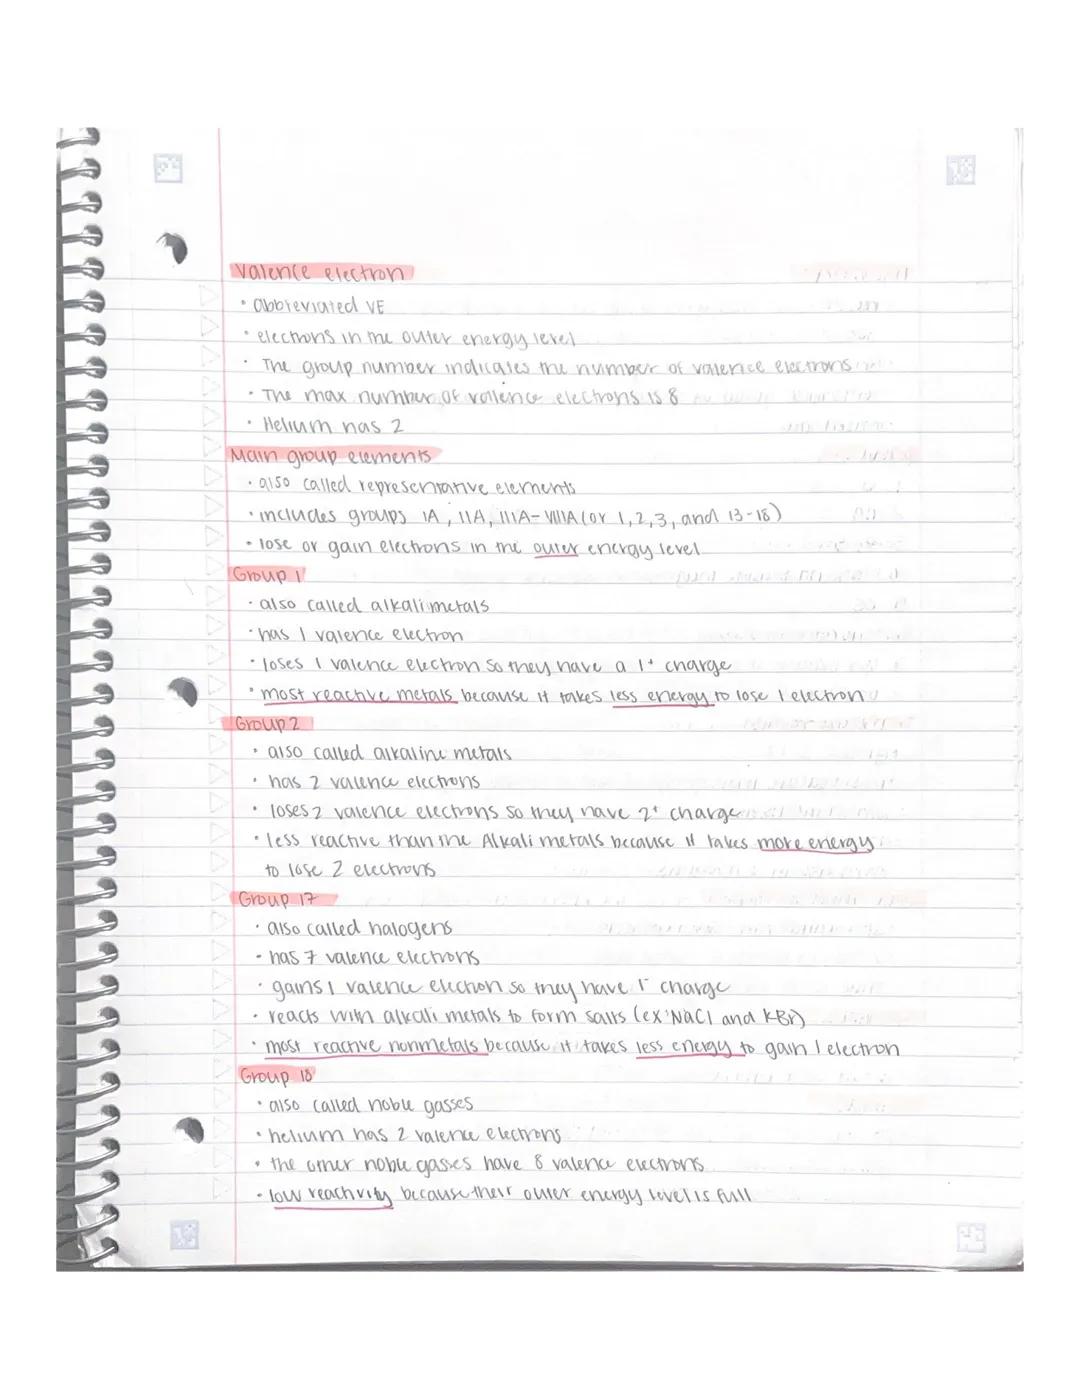 Valence electron
• abbreviated VE
• electrons in the outer energy level
• The group number indicates the number of valence electrons
• The max number of valence electrons is 8
• Helium has 2
Main group elements
• also called representative elements
• includes groups IA, IIA, IIIA-VIIIA (or 1, 2, 3, and 13-18)
• lose or gain electrons in the outer energy level
Group 1
• also called alkali metals
• has 1 valence electron
• loses 1 valence electron so they have a 1+ charge
• most reactive metals because it takes less energy to lose 1 electron
Group 2
• also called alkaline metals
• has 2 valence electrons
• loses 2 valence electrons so they have 2+ charge
• less reactive than the Alkali metals because it takes more energy
to lose 2 electrons
Group 17
• also called halogens
• has 7 valence electrons
• gains 1 valence electron so they have 1- charge
• reacts with alkali metals to form salts (ex: NaCl and KBr)
• most reactive nonmetals because it takes less energy to gain 1 electron
Group 18
• also called noble gasses
• helium has 2 valence electrons
• the other noble gasses have 8 valence electrons
• low reactivity because their outer energy level is full